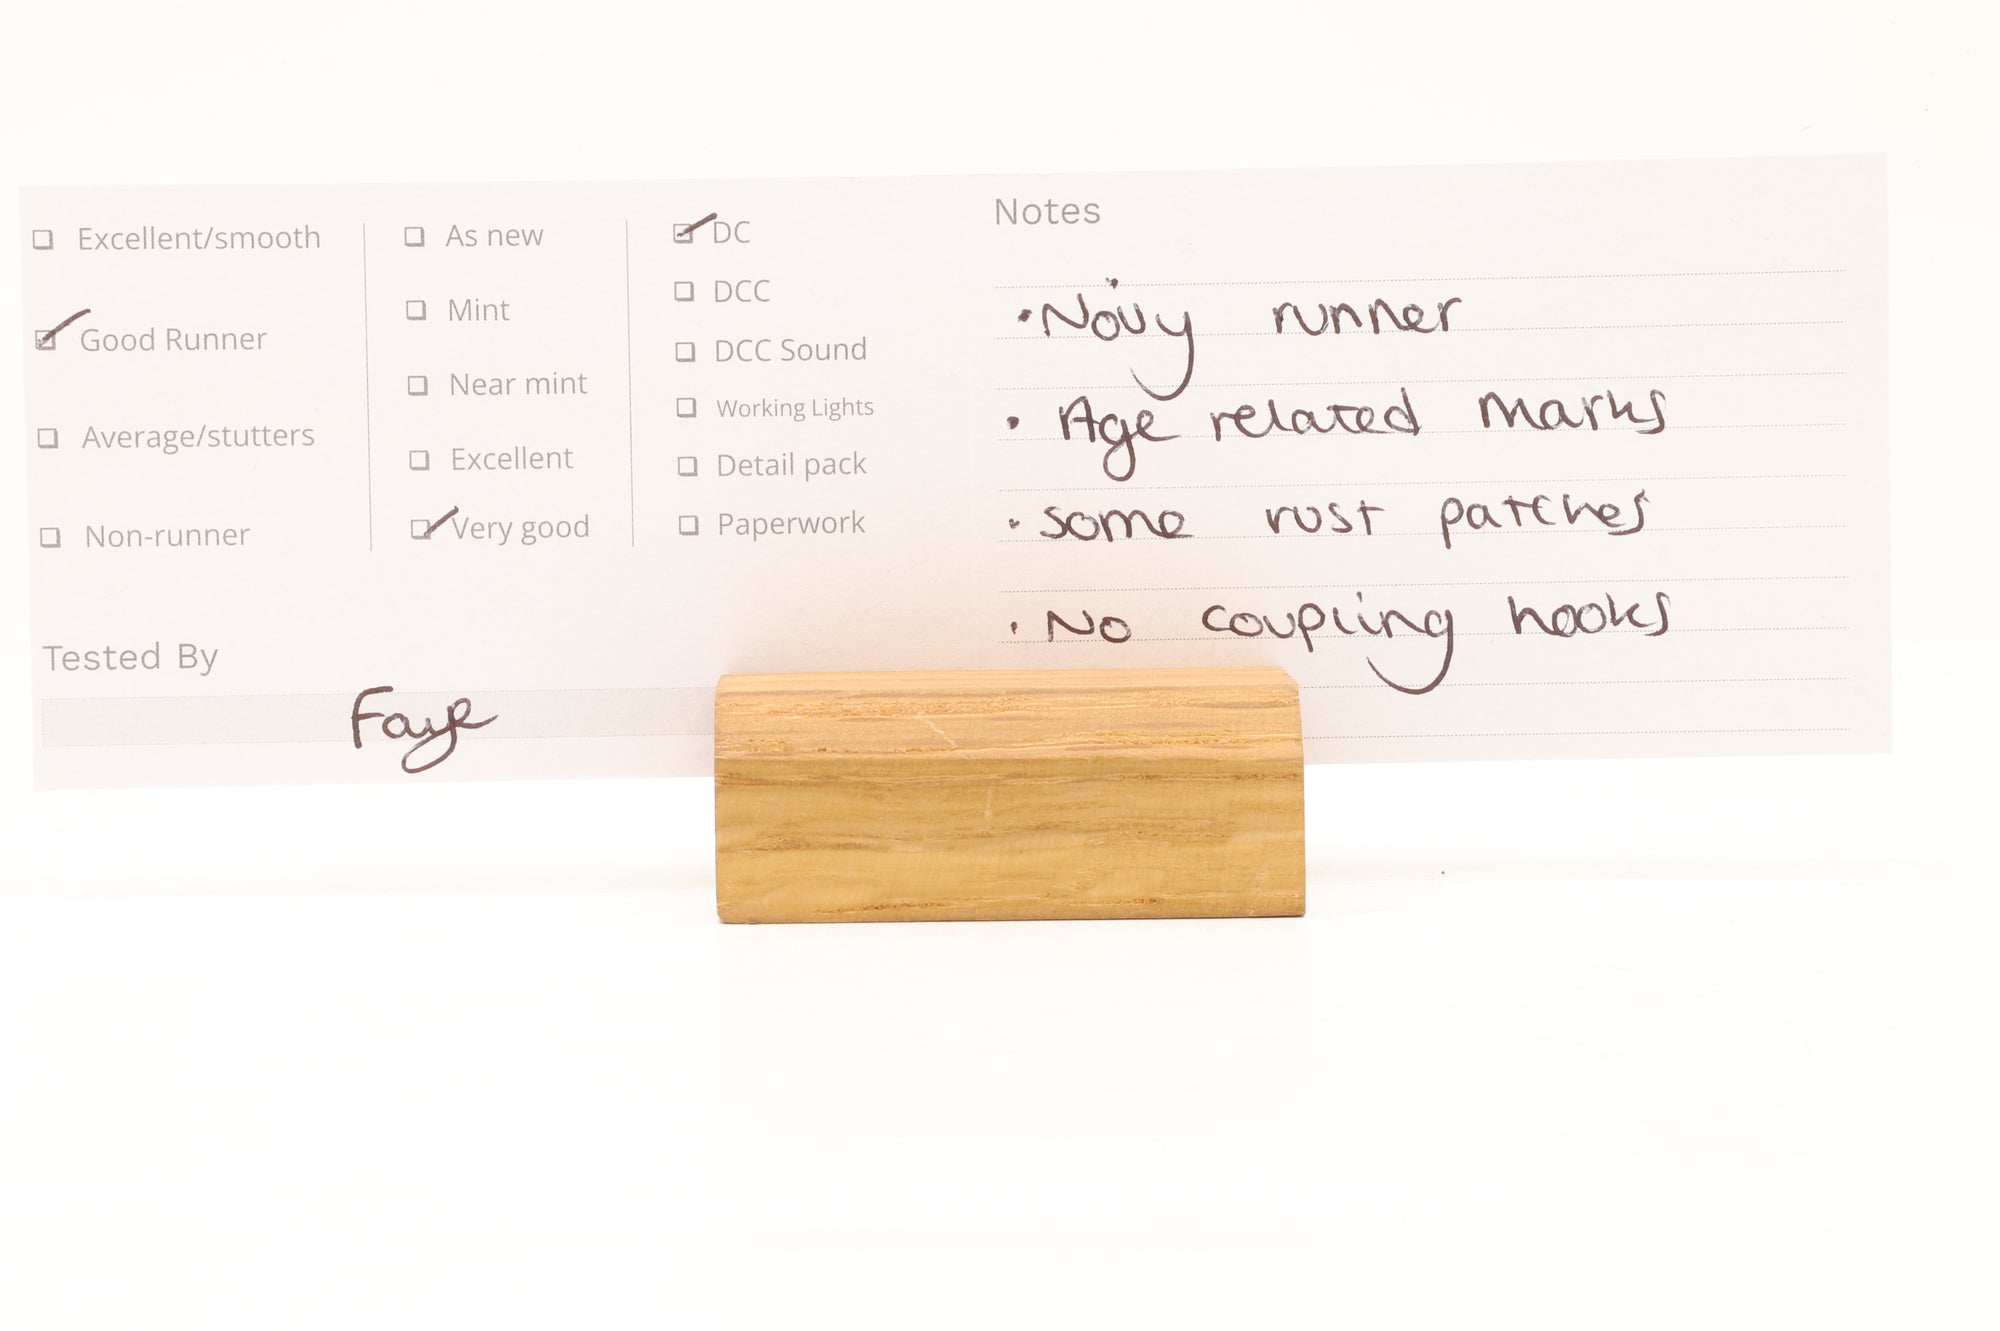 Excellent/smooth
Good Runner
Average/stutters
Non-runner
As new
Mint
Near mint
Excellent
Very good
DC
DCC
DCC Sound
Working Lights
Detail pack
Paperwork
Tested By
Faye
Notes
• Noisy runner
• Age related marks
• some rust patches
• No coupling hooks